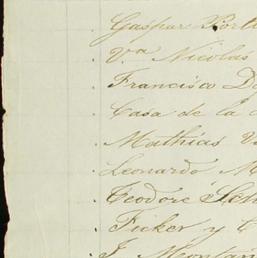 Gaspar
Va Nicolas
Francisco
Casa de la
Mathias
Leonardo M
Teodore
Ficker y C
J Montan